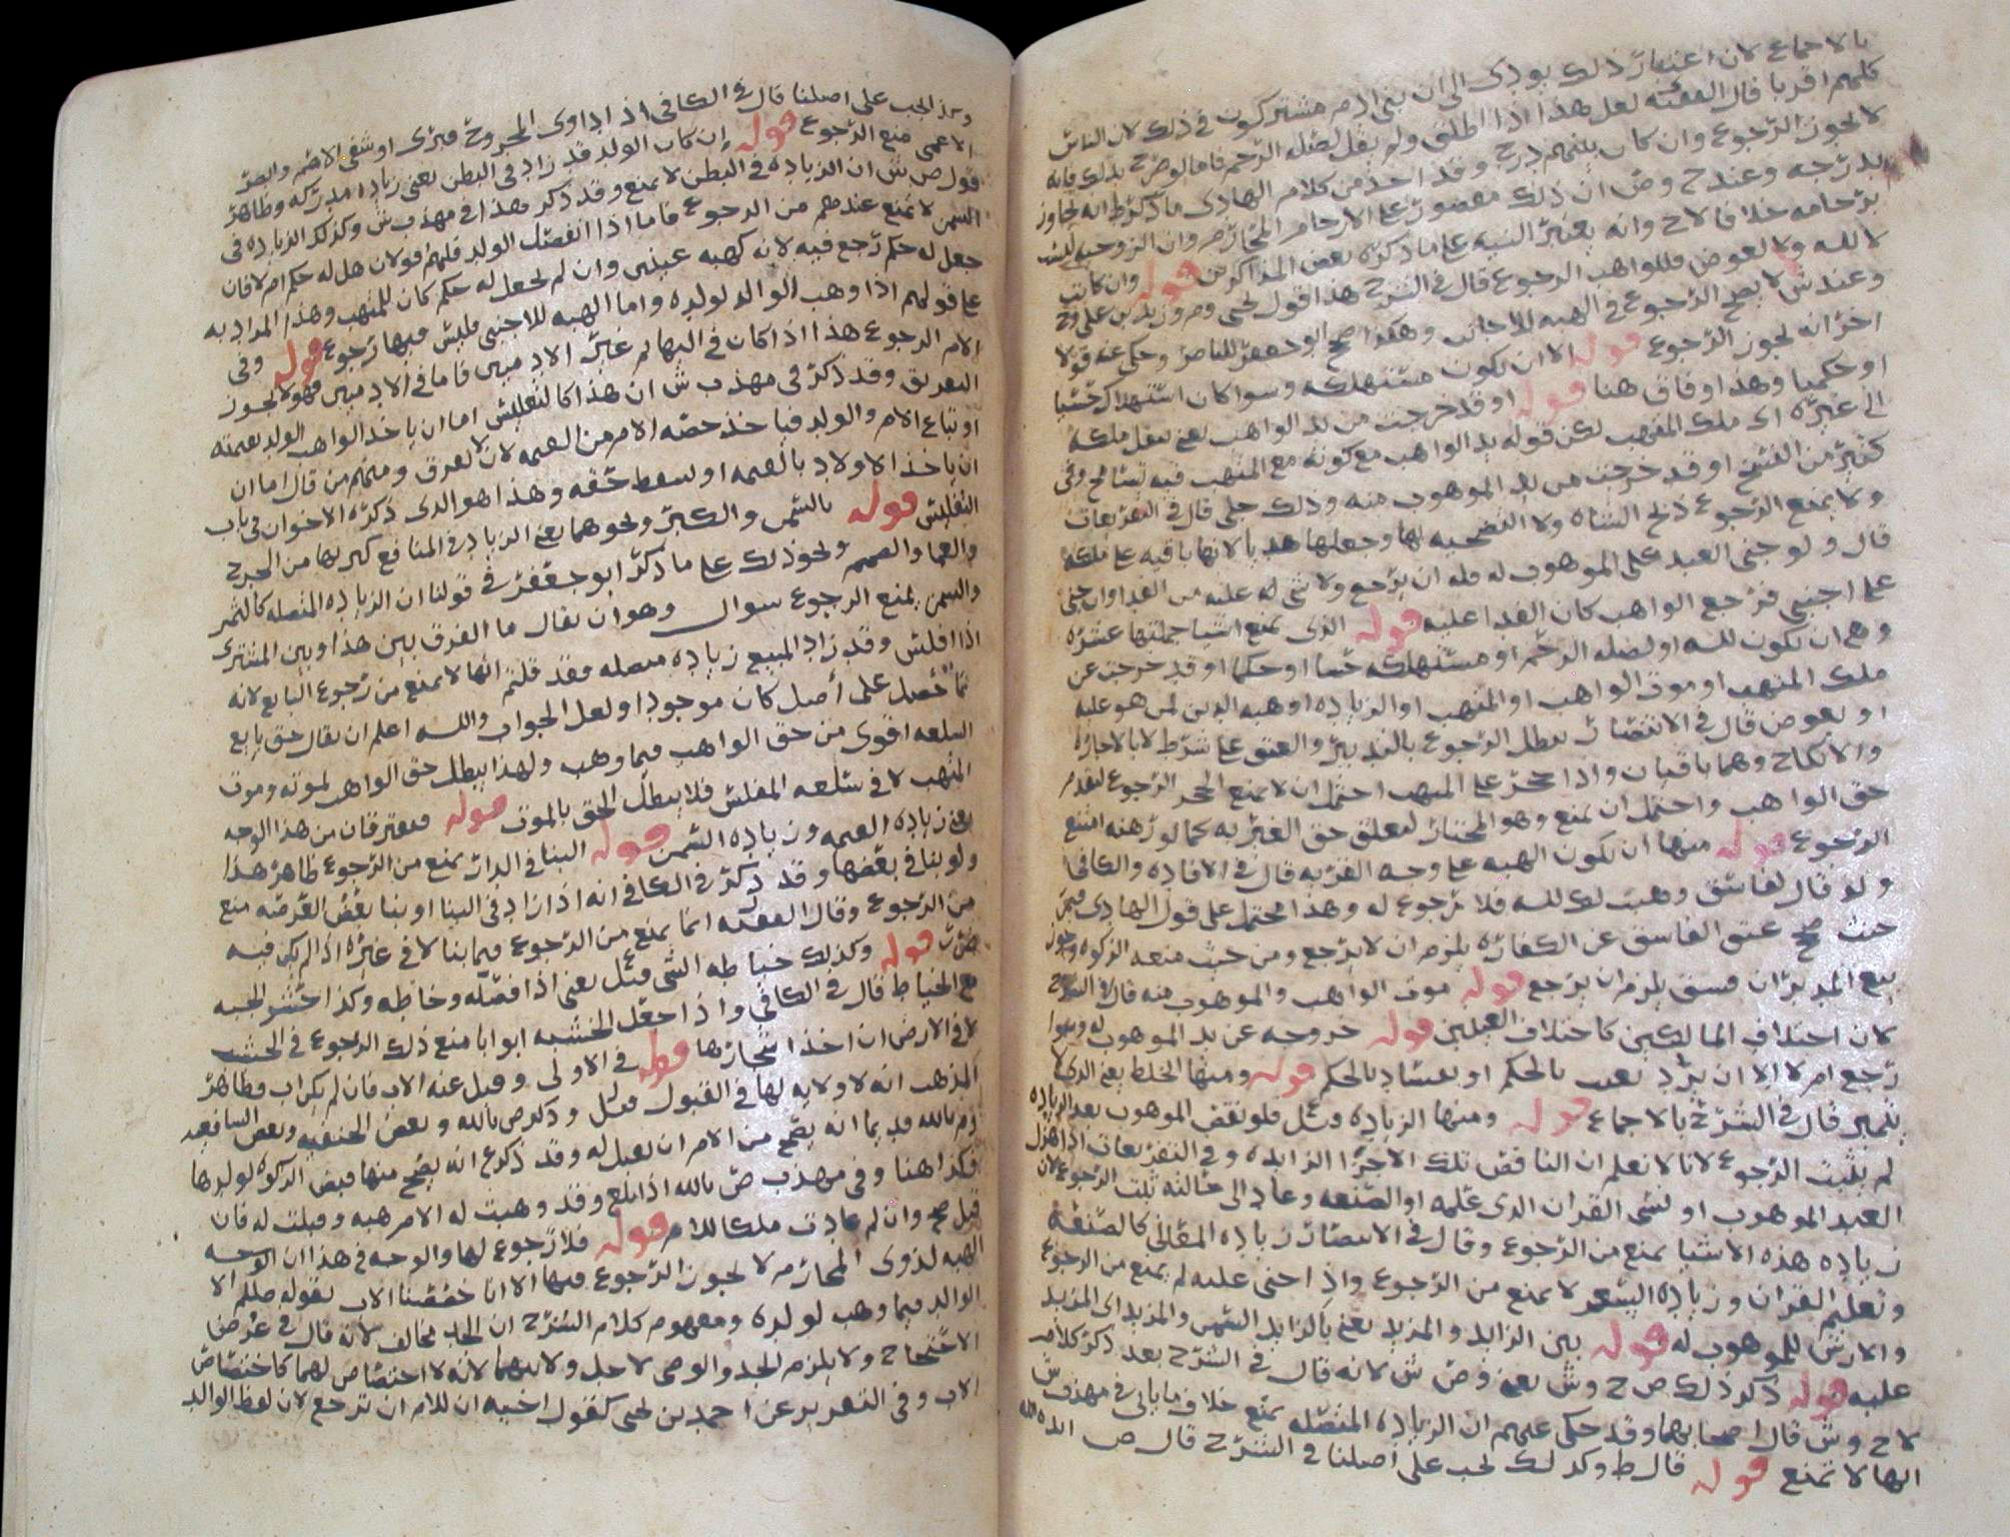 بالاجماع لان اعتبار ذلك يودى الى ان بنى ادم مشتركون في ذلك لان الناس
كلهم اقربا قال الفقيه لعل هذا اذا اطلق ولم يقل لصله الرحم فاما لو صرح بذلك فانه
لا يجوز الرجوع وان كان بينهم درج وقد اخذ من كلام الهادى ما ذكره ط انه يجاوز
بدرجه وعند ح وص ان ذلك مقصور على الارحام المحارم وان الزوجيه ليست
برحامه خلافا لاح وانه يعتبر النيه على ما ذكره بعض المذاكرين قوله وان كانت
لا لله ولا لعوض فللواهب الرجوع قال في الشرح هذا قول يحيى وم وزيد بن على وح
وعند ش لا يصح الرجوع في الهبه للاجانب وهكذا صحح ابو جعفر للناصر وحكى عنه قولا
اخر انه يجوز الرجوع قوله الا ان يكون مستهلكه وسوا كان استهلاك حسيا
او حكميا وهذا وفاق هنا قوله او قد خرجت من يد الواهب يعنى بنقل ملكه
الى غيره اى ملك المتهب لكن قوله يد الواهب مع كونه مع المتهب فيه تسامح وفى
كثير من النسخ او قد خرجت من يد الموهوب منه وذلك جلى قال في التفريعات
ولا يمنع الرجوع ذبح الشاه ولا التضحيه بها وجعلها هديا لانها باقيه على ملكه
قال ولو جنى العبد على الموهوب له فله ان يرجع ولا شى له عليه من الفدا وان جنى
على اجنبى فرجع الواهب كان الفدا عليه قوله الذى يمنع اشيا جملتها عشره
وهي ان تكون لله او لصله الرحم او مستهلكه حسا او حكما او قد خرجت عن
ملك المتهب او موت الواهب او المتهب او الزياده او هبه الدين لمن هو عليه
او بعوض قال في الانتصار يبطل الرجوع بالتدبير والعتق على شرط لا بالاجاره
والانكاح وهما باقيان واذا حجر على المتهب احتمل ان لا يمنع الحجر الرجوع لتقدم
حق الواهب واحتمل ان يمنع وهو المختار لتعلق حق الغير به كما لو رهنه امتنع
الرجوع قوله منها ان تكون الهبه على وجه القربه قال في الافاده والكافى
ولو قال لفاسق وهبت لك لله فلا رجوع له وهذا محتمل على قول الهادى فمن
حيث صحح عتق الفاسق عن الكفاره يلزم ان لا يرجع ومن حيث منعه الزكوه وجوز
بيع المدبر ان فسق يلزم ان يرجع قوله موت الواهب والموهوب منه قال في الشرح
لان اختلاف المالكين كاختلاف العينين قوله خروجه عن يد الموهوب له وسوا
رجع ام لا الا ان يرد بعيب بالحكم او بفساد بالحكم قوله ومنها الخلط يعنى الذى لا
يتميز قال في الشرح بالاجماع قوله ومنها الزياده وسل فلو نقص الموهوب بعد الزياده
لم يثبت الرجوع لانا لا نعلم ان الناقص تلك الاجزا الزايده وفي التفريعات اذا هزل
العبد الموهوب او نسى القران الذى علمه او الصنعه وعاد الى حالته ثبت الرجوع لان
زياده هذه الاشيا يمنع من الرجوع وقال في الانتصار زياده المعانى كالصنعه
وتعلم القران وزياده السعر لا يمنع من الرجوع واذا جنى عليه لم يمنع من الرجوع
والارش للموهوب له قوله بين الزايد والمزيد يعنى بالزايد السمن والمزيد اى المزيد
عليه قوله ذكر ذلك ص ح وش يعنى وص ش لانه قال في الشرح بعد ذكر كلام
لاح وش قال اصحابهما وقد حكى عنهم ان الزياده المتصله تمنع خلاف ما ياتى في مهذب ش
انها لا تمنع قوله قال ط وكذلك يجب على اصلنا في الشرح قال ص
وكذا يجب على اصلنا قال في الكافى اذا داوى المجروح فبرى او شفى الاصم والبصر
الاعمى منع الرجوع قوله وان كان الولد قد زاد في البطن يعنى زياده مدركه وظاهر
قول ص ش ان الزياده في البطن لا تمنع وقد ذكر هذا في مهذب ش وكذلك الزياده في
السمن لا تمنع عندهم من الرجوع فاما اذا انفصل الولد فلهم قولان هل له حكم ام لا فان
جعل له حكم رجع فيه لانه كهبه عينين وان لم يجعل له حكم كان للمتهب وهذا المراد به
على قولهم اذا وهب الوالد لولده واما الهبه للاجنبى فليس فيها رجوع قوله وفى
الام الرجوع هذا اذا كان في البهايم غير الادميين فاما في الادميين فهو لا يجوز
التفريق وقد ذكر في مهذب ش ان هذا كالتفليس اما ان ياخذ الواهب الولد بقيمته
او تباع الام والولد فياخذ حصه الام من القيمه لان لا يفرق ومنهم من قال اما ان
ان ياخذ الاولاد بالقيمه او يسقط حقه وهذا هو الذى ذكره الاخوان في باب
التفليس قوله بالسمن والكبر ونحوهما يعنى الزياده في المنافع كبرئها من الجرح
والعما والصمم ونحو ذلك على ما ذكره ابو جعفر في قولنا ان الزياده المتصله كالثمر
والسمن يمنع الرجوع سوال وهو ان يقال ما الفرق بين هذا وبين المشترى
اذا افلس وقد زاد المبيع زياده متصله فقد قلتم انها لا تمنع من رجوع البايع لانه
نما حصل على اصل كان موجودا ولعل الجواب والله اعلم ان يقال حق بايع
السلعه اقوى من حق الواهب فيما وهب ولهذا يبطل حق الواهب لموته وموت
المتهب لا في سلعه المفلس فلا يبطل الحق بالموت قوله فيفترقان من هذا الوجه
يعنى زياده القيمه وزياده السمن قوله البنا في الدار يمنع من الرجوع ظاهر هذا
ولو بنا في بعضها وقد ذكر في الكافى انه اذا زاد في البنا او بنا بعض العرصه منع
من الرجوع وقال الفقيه انما يمنع من الرجوع فيما بنا لا في غيره اذا لم يكن فيه
ضرر قوله وكذلك خياطه الشى وسل يعنى اذا فصله وخاطه وكذا حشو الجبه
مع الخياط قال في الكافى واذا جعل الخشبه ابوابا منع ذلك الرجوع في الخشب
لا في الارض ان اخذ اشجارها قوله في الاولى وقبل عنه الاب فان لم يكن اب فظاهر
المذهب انه لا ولايه لها في القبول وسل وذكر ص بالله وبعض الحنفيه وبعض الشافعيه
وم بالله قديما انه يصح من الام ان تقبل له وقد ذكر ع انه يصح منها قبض الزكوه لولدها
فكذا هنا وفي مهذب ص بالله اذا بلغ وقد وهبت له الام هبه وقبلت له فان
قبل صح وان لم عادت ملكا للام قوله فلا رجوع لها والوجه في هذا ان الوجه
الهبه لذوى المحارم لا يجوز الرجوع فيها الا انا خصصنا الاب بقوله صلعم الا
الوالد فيما وهب لولده ومفهوم كلام الشرح ان الجد مخالف لانه قال في عرض
الاحتجاج ولا يلزم الجد والوصى لاجل ولايتهما لانه لا اختصاص لهما كاختصاص
الاب وفي التقرير عن احمد بن يحيى كقول اخيه ان للام ان ترجع لان لفظ الوالد